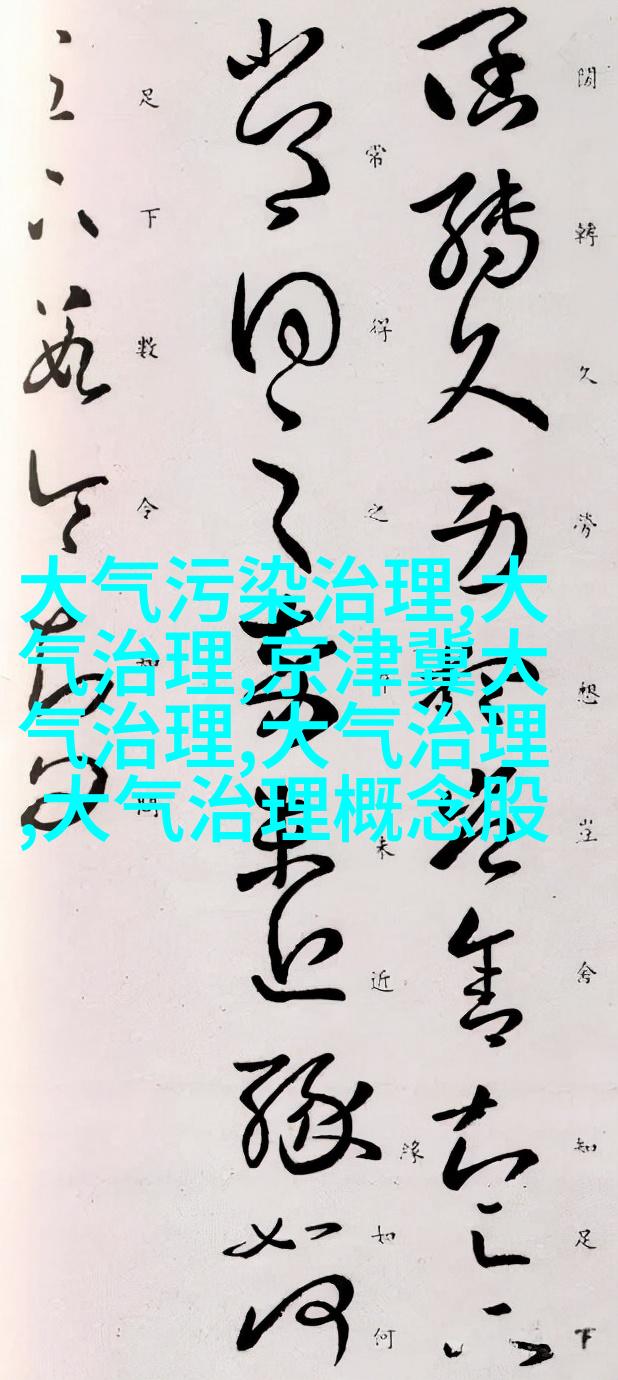 轉久勞想豈舍知足下
常得之未近緣如何
足下數令問
大气污染治理,大
气治理,京津冀大
气治理,大气治理
,大气治理概念股